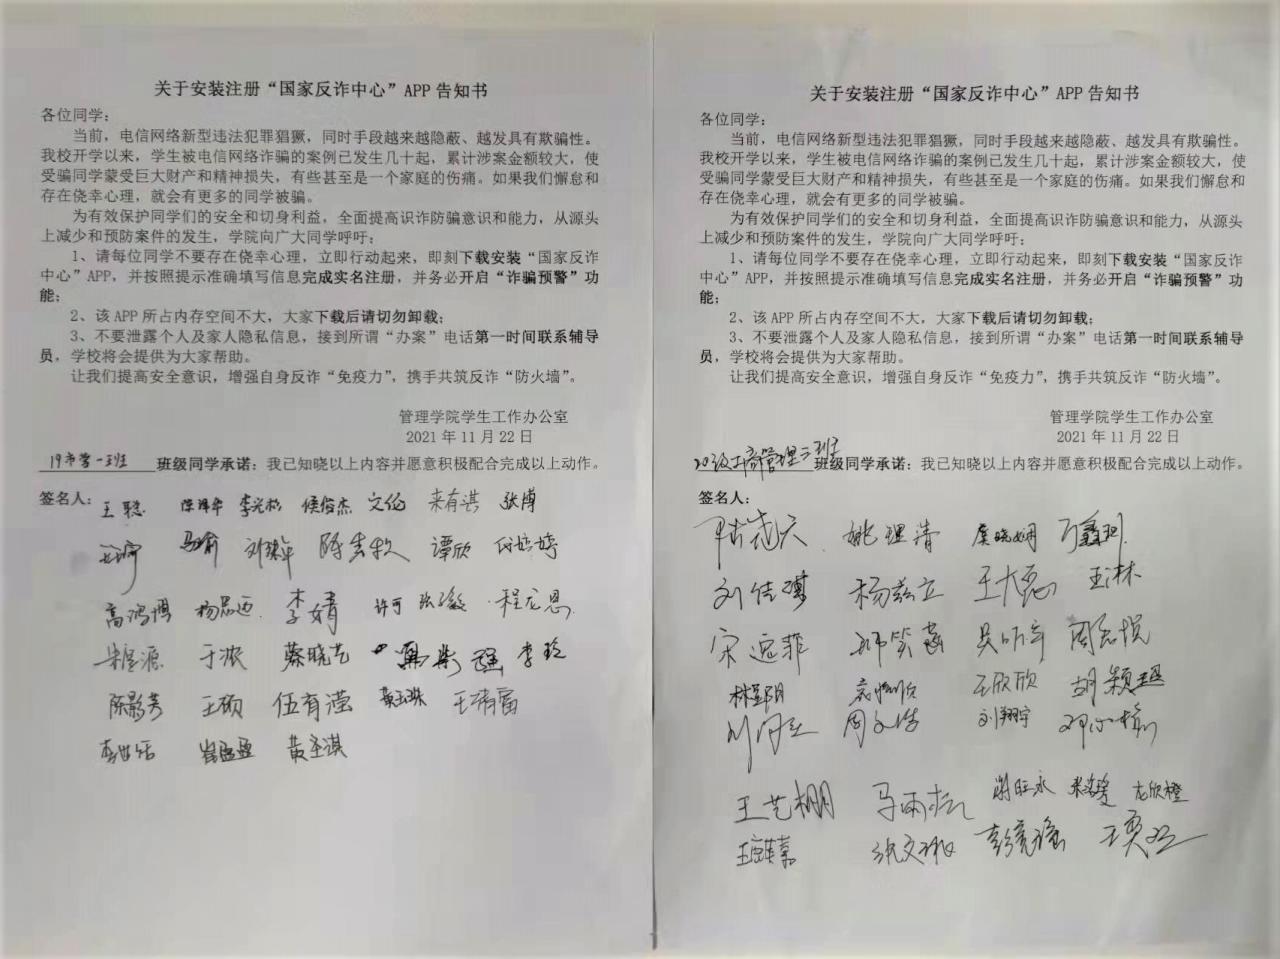 关于安装注册“国家反诈中心”APP 告知书
各位同学：
当前，电信网络新型违法犯罪猖獗，同时手段越来越隐蔽、越发具有欺骗性。
我校开学以来，学生被电信网络诈骗的案例已发生几十起，累计涉案金额较大，使
受骗同学蒙受巨大财产和精神损失，有些甚至是一个家庭的伤痛。如果我们懈怠和
存在侥幸心理，就会有更多的同学被骗。
为有效保护同学们的安全和切身利益，全面提高识诈防骗意识和能力，从源头
上减少和预防案件的发生，学院向广大同学呼吁：
1、请每位同学不要存在侥幸心理，立即行动起来，即刻下载安装“国家反诈
中心”APP，并按照提示准确填写信息完成实名注册，并务必开启“诈骗预警”功
能；
2、该 APP 所占内存空间不大，大家下载后请切勿卸载；
3、不要泄露个人及家人隐私信息，接到所谓“办案”电话第一时间联系辅导
员，学校将会提供为大家帮助。
让我们提高安全意识，增强自身反诈“免疫力”，携手共筑反诈“防火墙”。
管理学院学生工作办公室
2021 年 11 月 22 日
19市营一班 班级同学承诺：我已知晓以上内容并愿意积极配合完成以上动作。
签名人：
王聪 李兴杉 侯俊杰 文伦 来有淇 张博
马瑜 谭欣
高鸿博 李婧 许可 程龙恩
于淼 蔡晓艺 李玲
陈影芳 王硕 伍有滢 王清富
黄圣淇
关于安装注册“国家反诈中心”APP 告知书
各位同学：
当前，电信网络新型违法犯罪猖獗，同时手段越来越隐蔽、越发具有欺骗性。
我校开学以来，学生被电信网络诈骗的案例已发生几十起，累计涉案金额较大，使
受骗同学蒙受巨大财产和精神损失，有些甚至是一个家庭的伤痛。如果我们懈怠和
存在侥幸心理，就会有更多的同学被骗。
为有效保护同学们的安全和切身利益，全面提高识诈防骗意识和能力，从源头
上减少和预防案件的发生，学院向广大同学呼吁：
1、请每位同学不要存在侥幸心理，立即行动起来，即刻下载安装“国家反诈
中心”APP，并按照提示准确填写信息完成实名注册，并务必开启“诈骗预警”功
能；
2、该 APP 所占内存空间不大，大家下载后请切勿卸载；
3、不要泄露个人及家人隐私信息，接到所谓“办案”电话第一时间联系辅导
员，学校将会提供为大家帮助。
让我们提高安全意识，增强自身反诈“免疫力”，携手共筑反诈“防火墙”。
管理学院学生工作办公室
2021 年 11 月 22 日
20级工商管理二班 班级同学承诺：我已知晓以上内容并愿意积极配合完成以上动作。
签名人：
姚理清 虞晓娴
刘佳琪 杨兹立 王大磊 王沐
宋逸菲 吴昕年 周磊悦
王欣欣 胡颖超
周文浩 刘翔宇
王艺棚 马雨杭 谢旺永 龙欣橙
张文琳 彭亮瑜